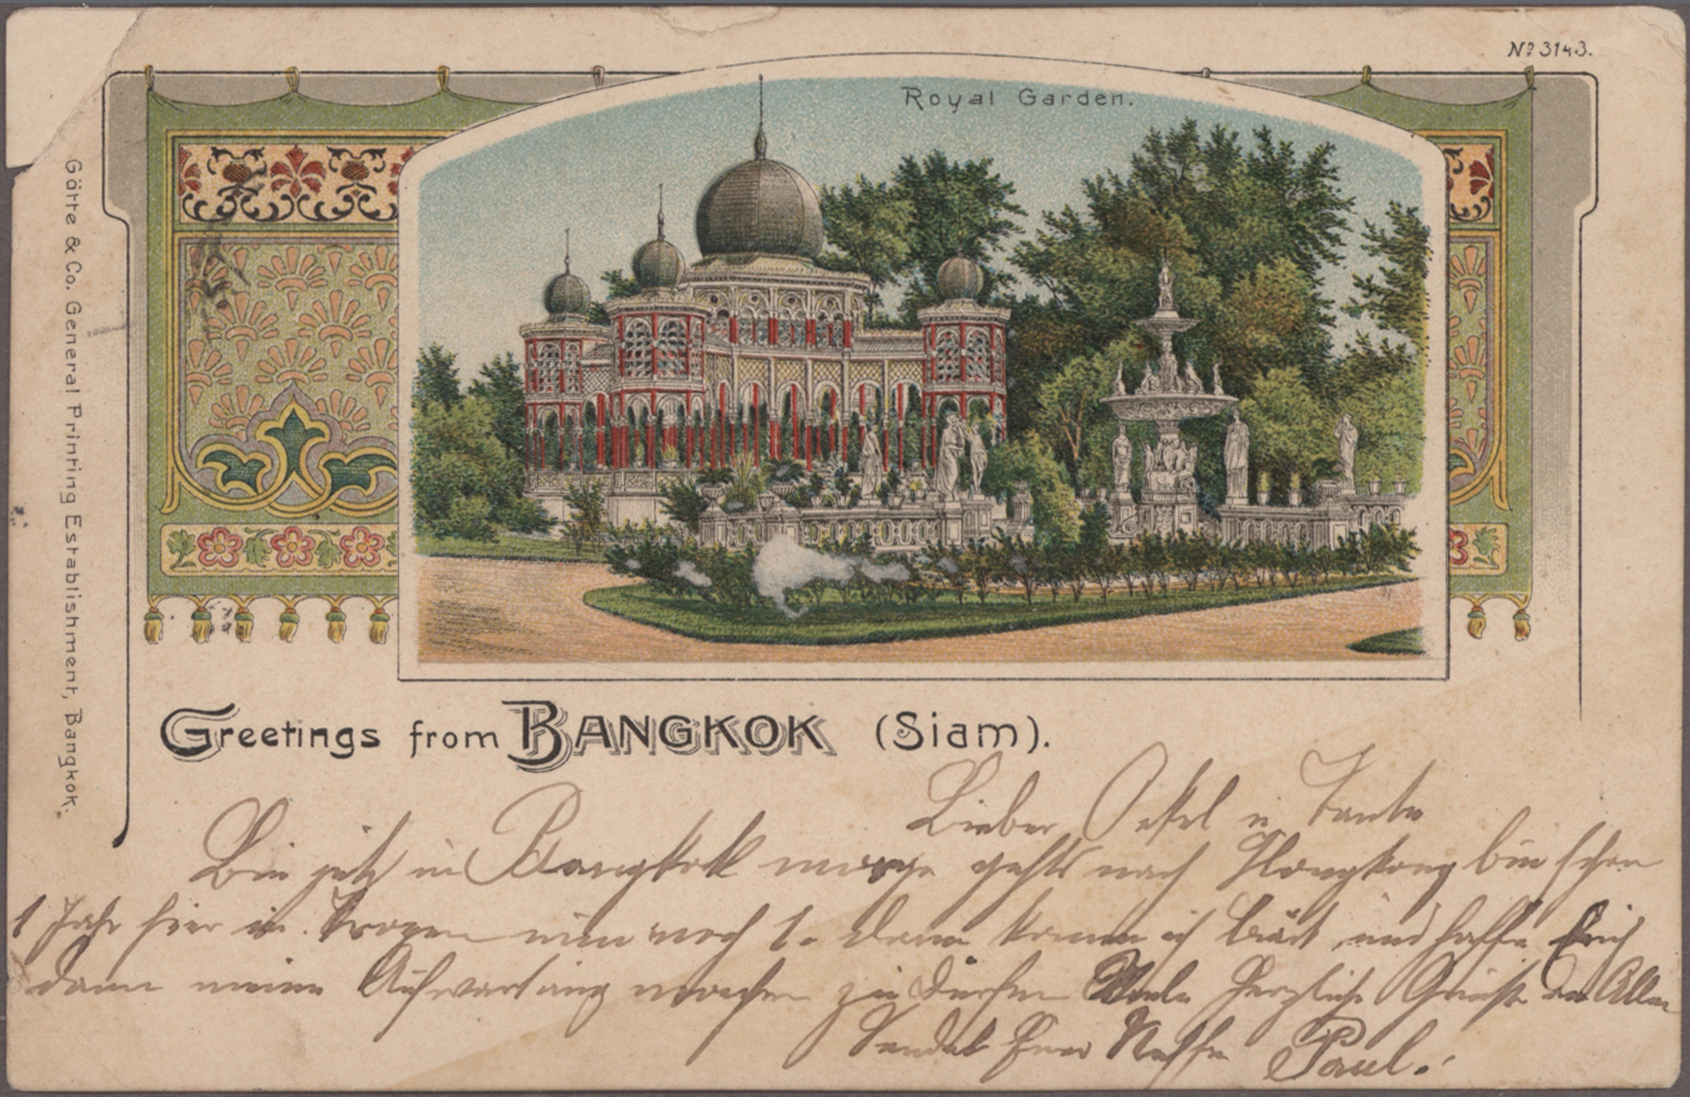 Nº 3143.
Royal Garden.
Götte & Co. General Printing Establishment, Bangkok.
Greetings from BANGKOK (Siam).
Lieber Onkel u Tante
Bin jetz in Bangkok morgen gehts nach Hongkong bin schon
1 Jahr hier in Tropen nun noch 1. dann komm ich und hoffe Euch
dann meine Aufwartung machen zu dürfen Viele herzliche Grüße an Alle
Sendet Euer Neffe Paul.